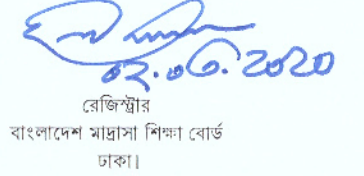 ০২.০৩.2020
রেজিস্ট্রার
বাংলাদেশ মাদ্রাসা শিক্ষা বোর্ড
ঢাকা।